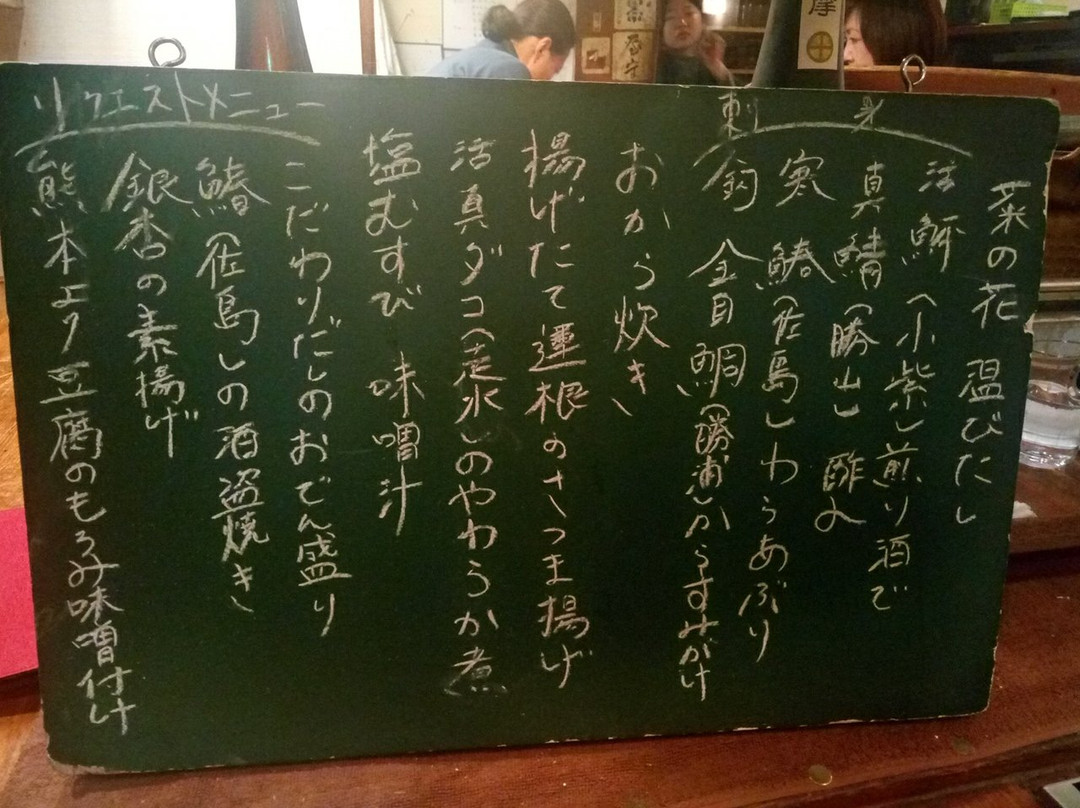 菜の花 温びたし
刺身
活 鮃(小柴)煎り酒で
真鯖(勝山)酢〆
寒 鰆(佐島)わらあぶり
釣 金目鯛(勝浦)からすみがけ
おから炊き
揚げたて蓮根のさつま揚げ
活真ダコ(走水)のやわらか煮
塩むすび 味噌汁
リクエストメニュー
こだわりだしのおでん盛り
鰆(佐島)の酒盗焼き
銀杏の素揚げ
熊本 豆腐のもろみ味噌付け
摩